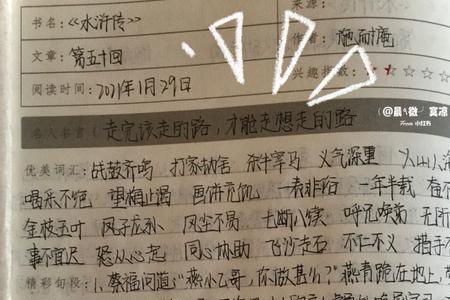 书名:《水浒传》 来源:
文章:第五十回 作者:施耐庵
阅读时间:2021年1月29日 兴趣指数:
@晨微寞凉
From 小红书
名人名言 走完该走的路,才能走想走的路
优美词汇:战鼓齐鸣 打家劫舍 杀牛宰马 义气深重
喝采不绝 望梅止渴 画饼充饥 一表非俗 一年半载
金枝玉叶 凤子龙孙 风尘不易 七断八续 呼兄唤弟
事不宜迟 怒从心起 同心协助 飞沙走石 不仁不义 措手不
精彩句段:1、蔡福问道:“燕小乙哥,你做甚么?”燕青跪在地上,